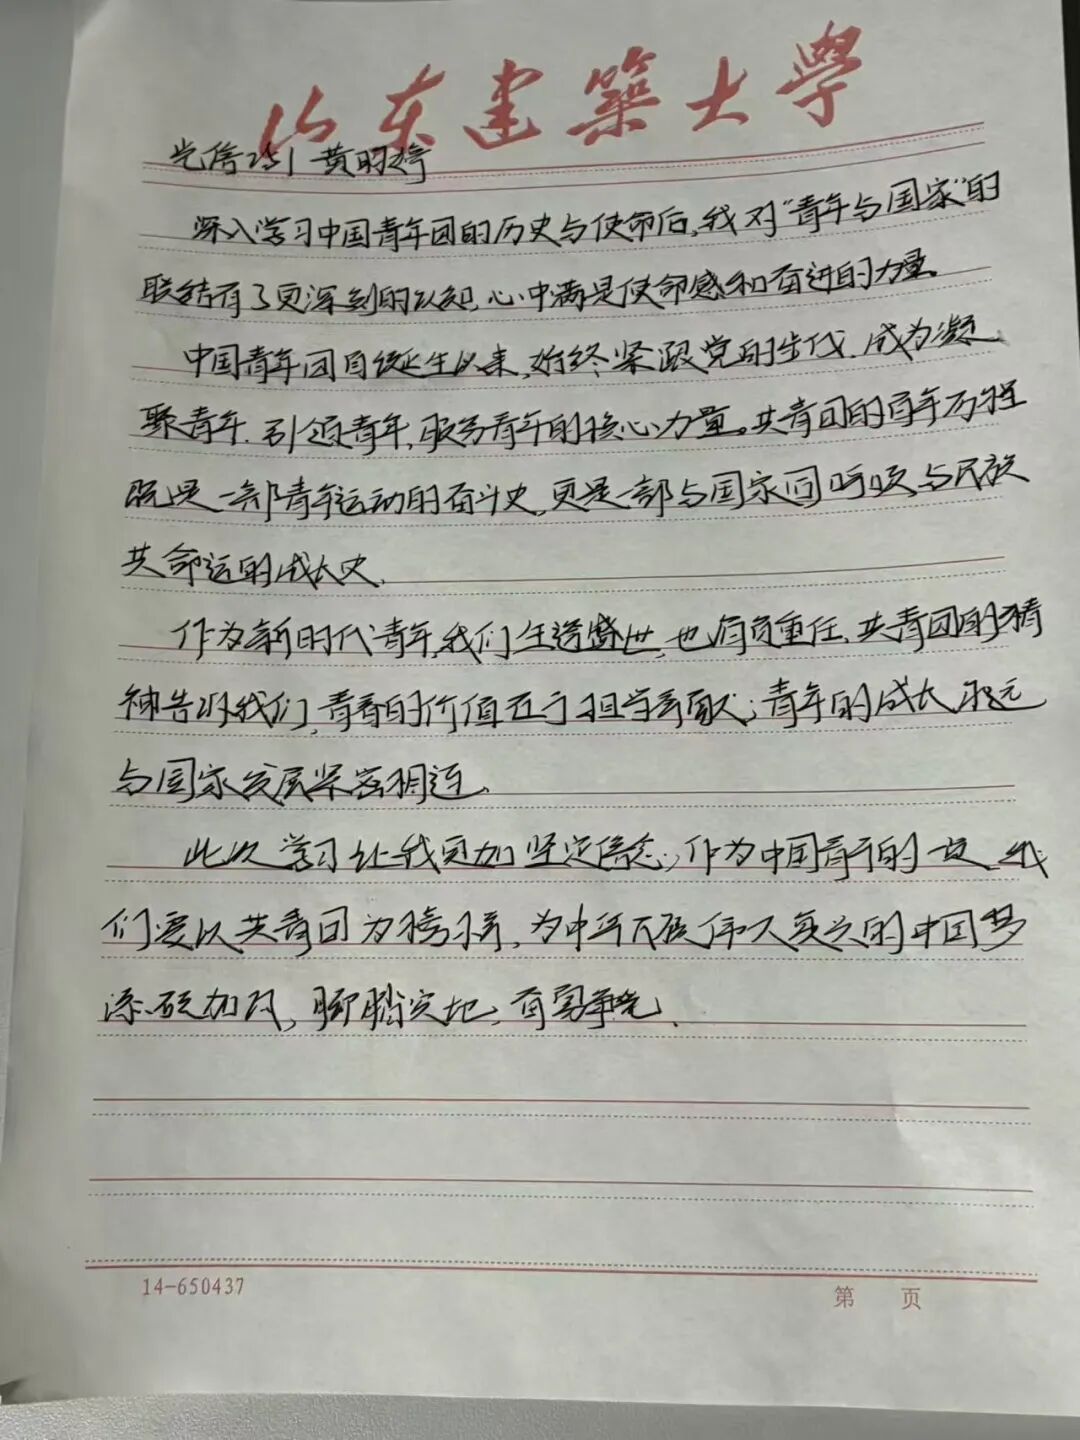 山东建筑大学
光信251 黄明婷
深入学习中国青年团的历史与使命后,我对"青年与国家"的
联结有了更深刻的认知,心中满是使命感和奋进的力量。
中国青年团自诞生以来,始终紧跟党的步伐,成为凝
聚青年、引领青年,服务青年的核心力量。共青团的百年历程
既是一部青年运动的奋斗史,更是一部与国家同呼吸、与民族
共命运的成长史.
作为新时代青年,我们生逢盛世,也肩负重任,共青团的精
神告诉我们,青春的价值在于担当奉献;青年的成长永远
与国家发展紧密相连.
此次学习让我更加坚定信念,作为中国青年的一员,我
们要以共青团为榜样,为中华民族伟大复兴的中国梦
添砖加瓦,脚踏实地,奋勇争先.
14-650437
第 页